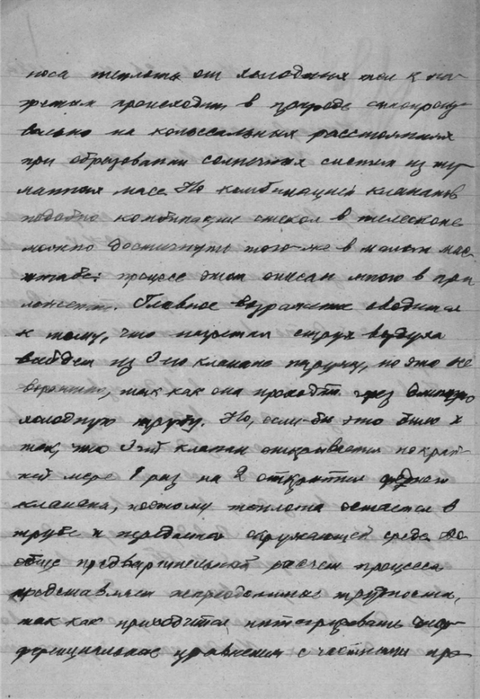 носа теплоты от холодных тел к на-
гретым происходит в природе самопроиз-
вольно на колоссальных расстояниях
при образовании солнечных систем из ту-
манных масс. Но комбинацией клапанов
подобно комбинации стекол в телескопе
можно достигнуть того-же в малом мас-
штабе: процесс этот описан мною в при
Главное возражение сводится
к тому, что нагретая струя воздуха
выйдет из 3го клапана наружу, но это не
вероятно, так как она проходит чрез длинную
холодную трубу. Но, если-бы это было и
так, то 3ий клапан открывается по край-
ней мере 1 раз на 2 открытия
клапана, поэтому теплота остается в
трубе и передается окружающей среде. Во
обще предварительный расчет процесса
представляет непреодолимые трудности,
так как приходится интегрировать диф-
ференциальные уравнения с частными про-